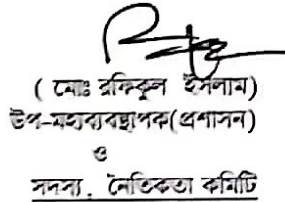 ( মোঃ রফিকুল ইসলাম)
উপ-মহাব্যবস্থাপক(প্রশাসন)
ও
সদস্য, নৈতিকতা কমিটি